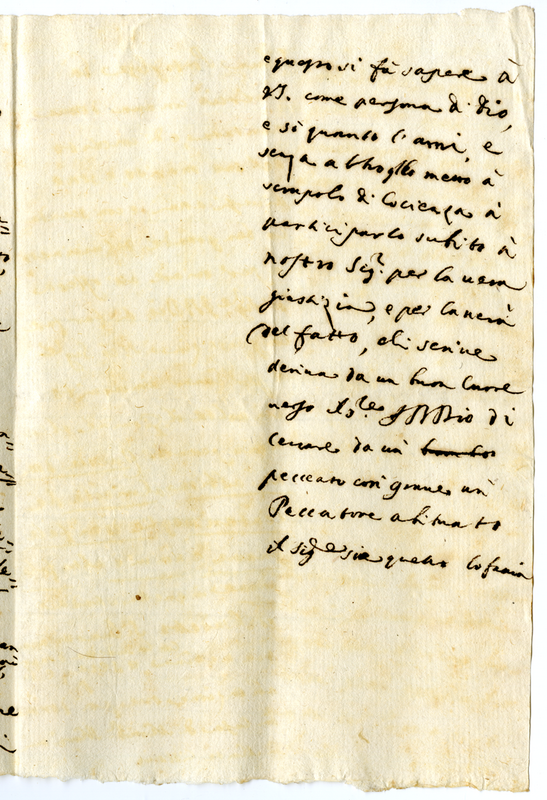 e questo si fà sapere à
VS. come persona di Dio,
e sò quanto l'ami, e
senza altro metto à
scrupolo di Cocienza à
participarlo subito à
nostro Sig.r per la vera
giustizia, e per la verà
del fatto, chi scrive
deriva da un buon Cuore
verso il
di
Cavare da un
peccato così grave un
Peccatore abituato
il Sig.e sia quello lo faccia